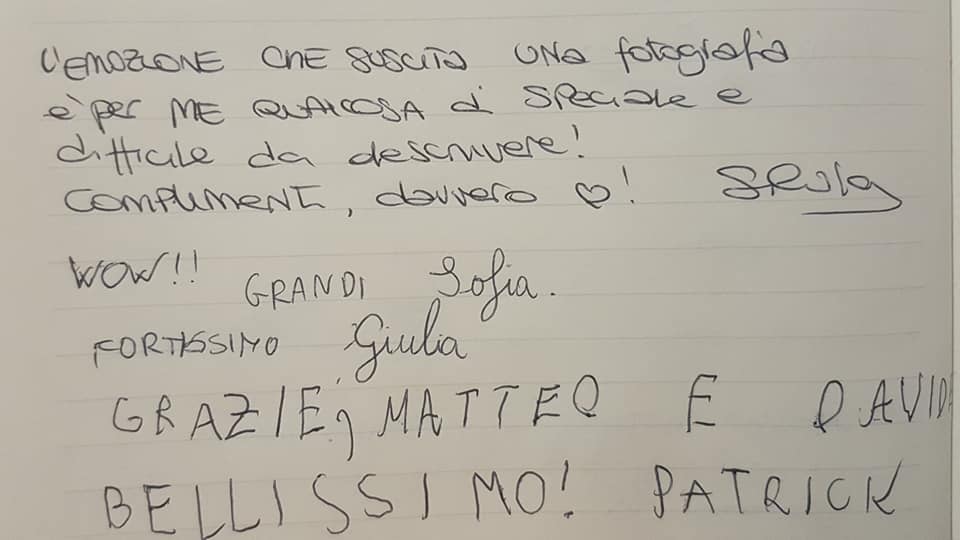 L'EMOZIONE CHE SUSCITA UNA fotografia
è per ME QUALCOSA di SPECIALE e
difficile da descrivere!
COMPLIMENTI, davvero ♡!
WOW!! GRANDI Sofia.
FORTISSIMO Giulia
GRAZIE, MATTEO E DAVID
BELLISSIMO! PATRICK